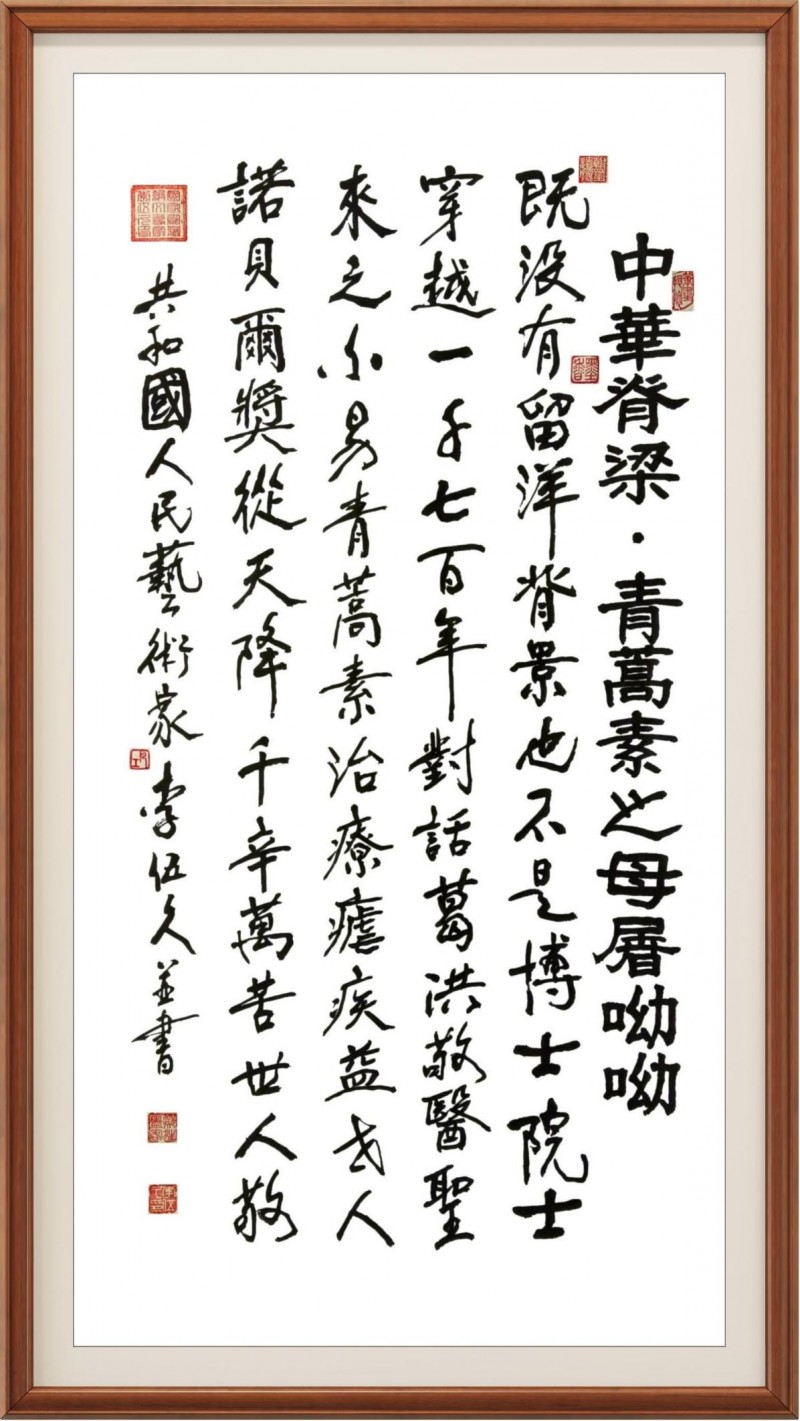 中華脊梁·青蒿素之母屠呦呦
既没有留洋背景也不是博士院士
穿越一千七百年對話葛洪敬醫聖
來之不易青蒿素治療瘧疾益世人
諾貝爾獎從天降千辛萬苦世人敬
共和國人民藝術家李伍久並書